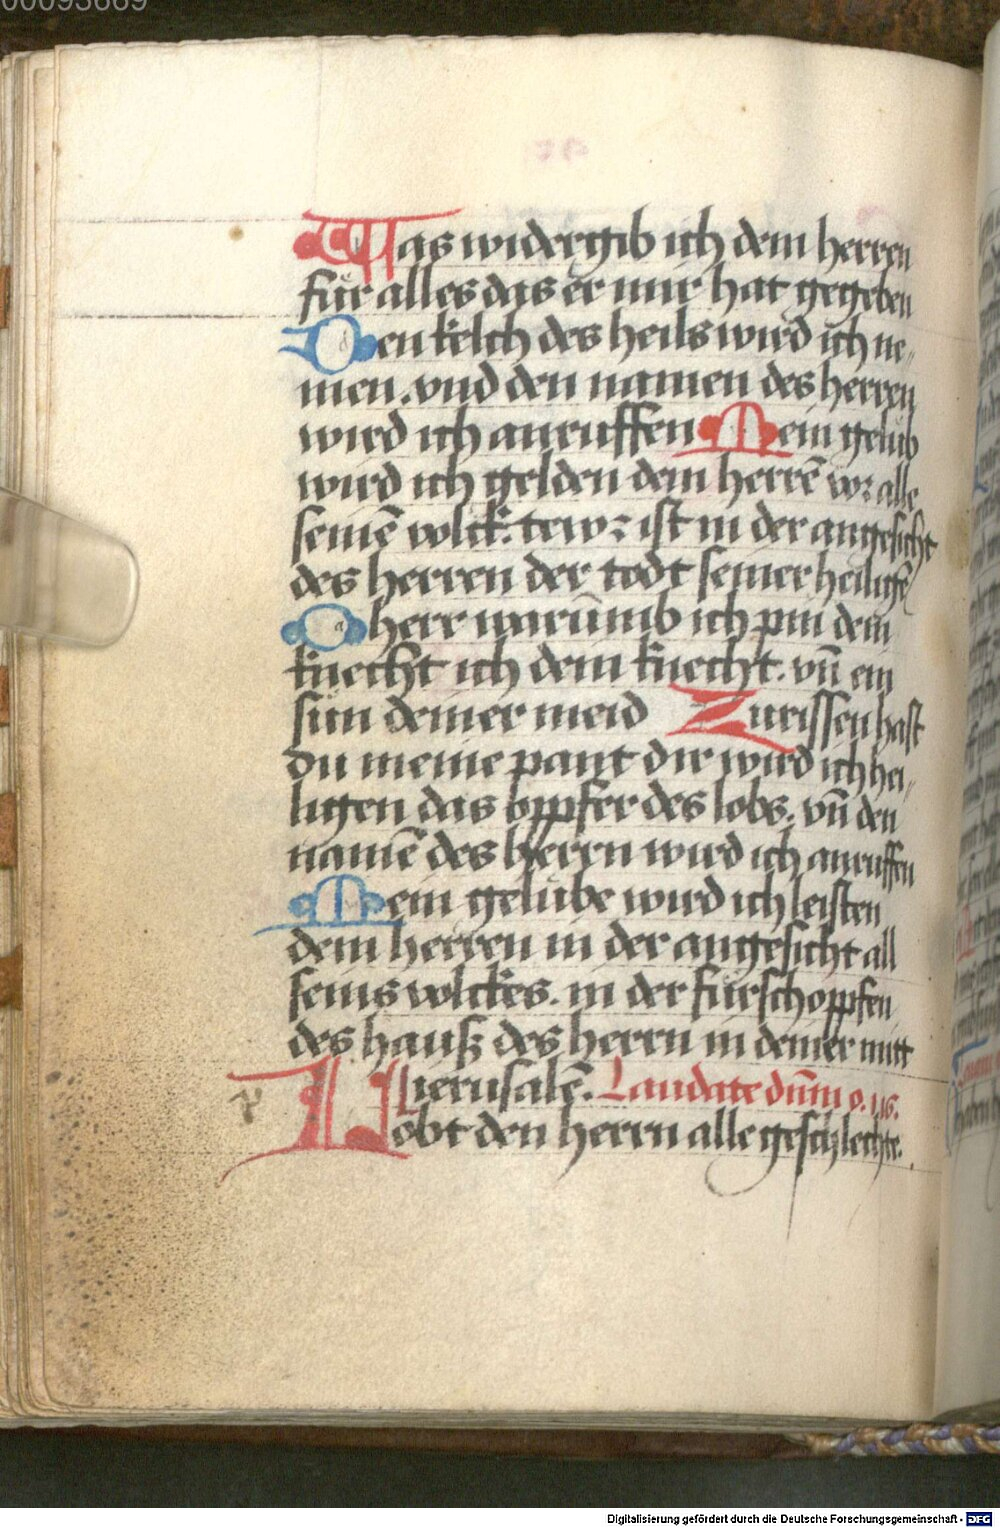 00093669
Was widergib ich dem herren
für alles das er mir hat gegeben
Den kelch des heils wird ich ne-
men. vnd den namen des herren
wird ich anruffen Mein gelub
wird ich gelden dem herrē vor alle
seinē volck. tewr ist in der angesicht
des herren der todt seiner heiligē
O herr warūmb ich pin dein
knecht ich dein knecht. vn̄ ein
sun deiner meid Zurissen hast
du meine pant dir wird ich hei-
ligen das oppfer des lobs. vn̄ den
namē des herrn wird ich anruffen
Mein gelube wird ich leisten
dem herren in der angesicht all
seins volckes. in der fürschoppfen
des hauß des herrn in deiner mitt
Jierusalē. Laudate dn̄m o. 116.
Lobt den herrn alle geschlechte.
Digitalisierung gefördert durch die Deutsche Forschungsgemeinschaft - DFG